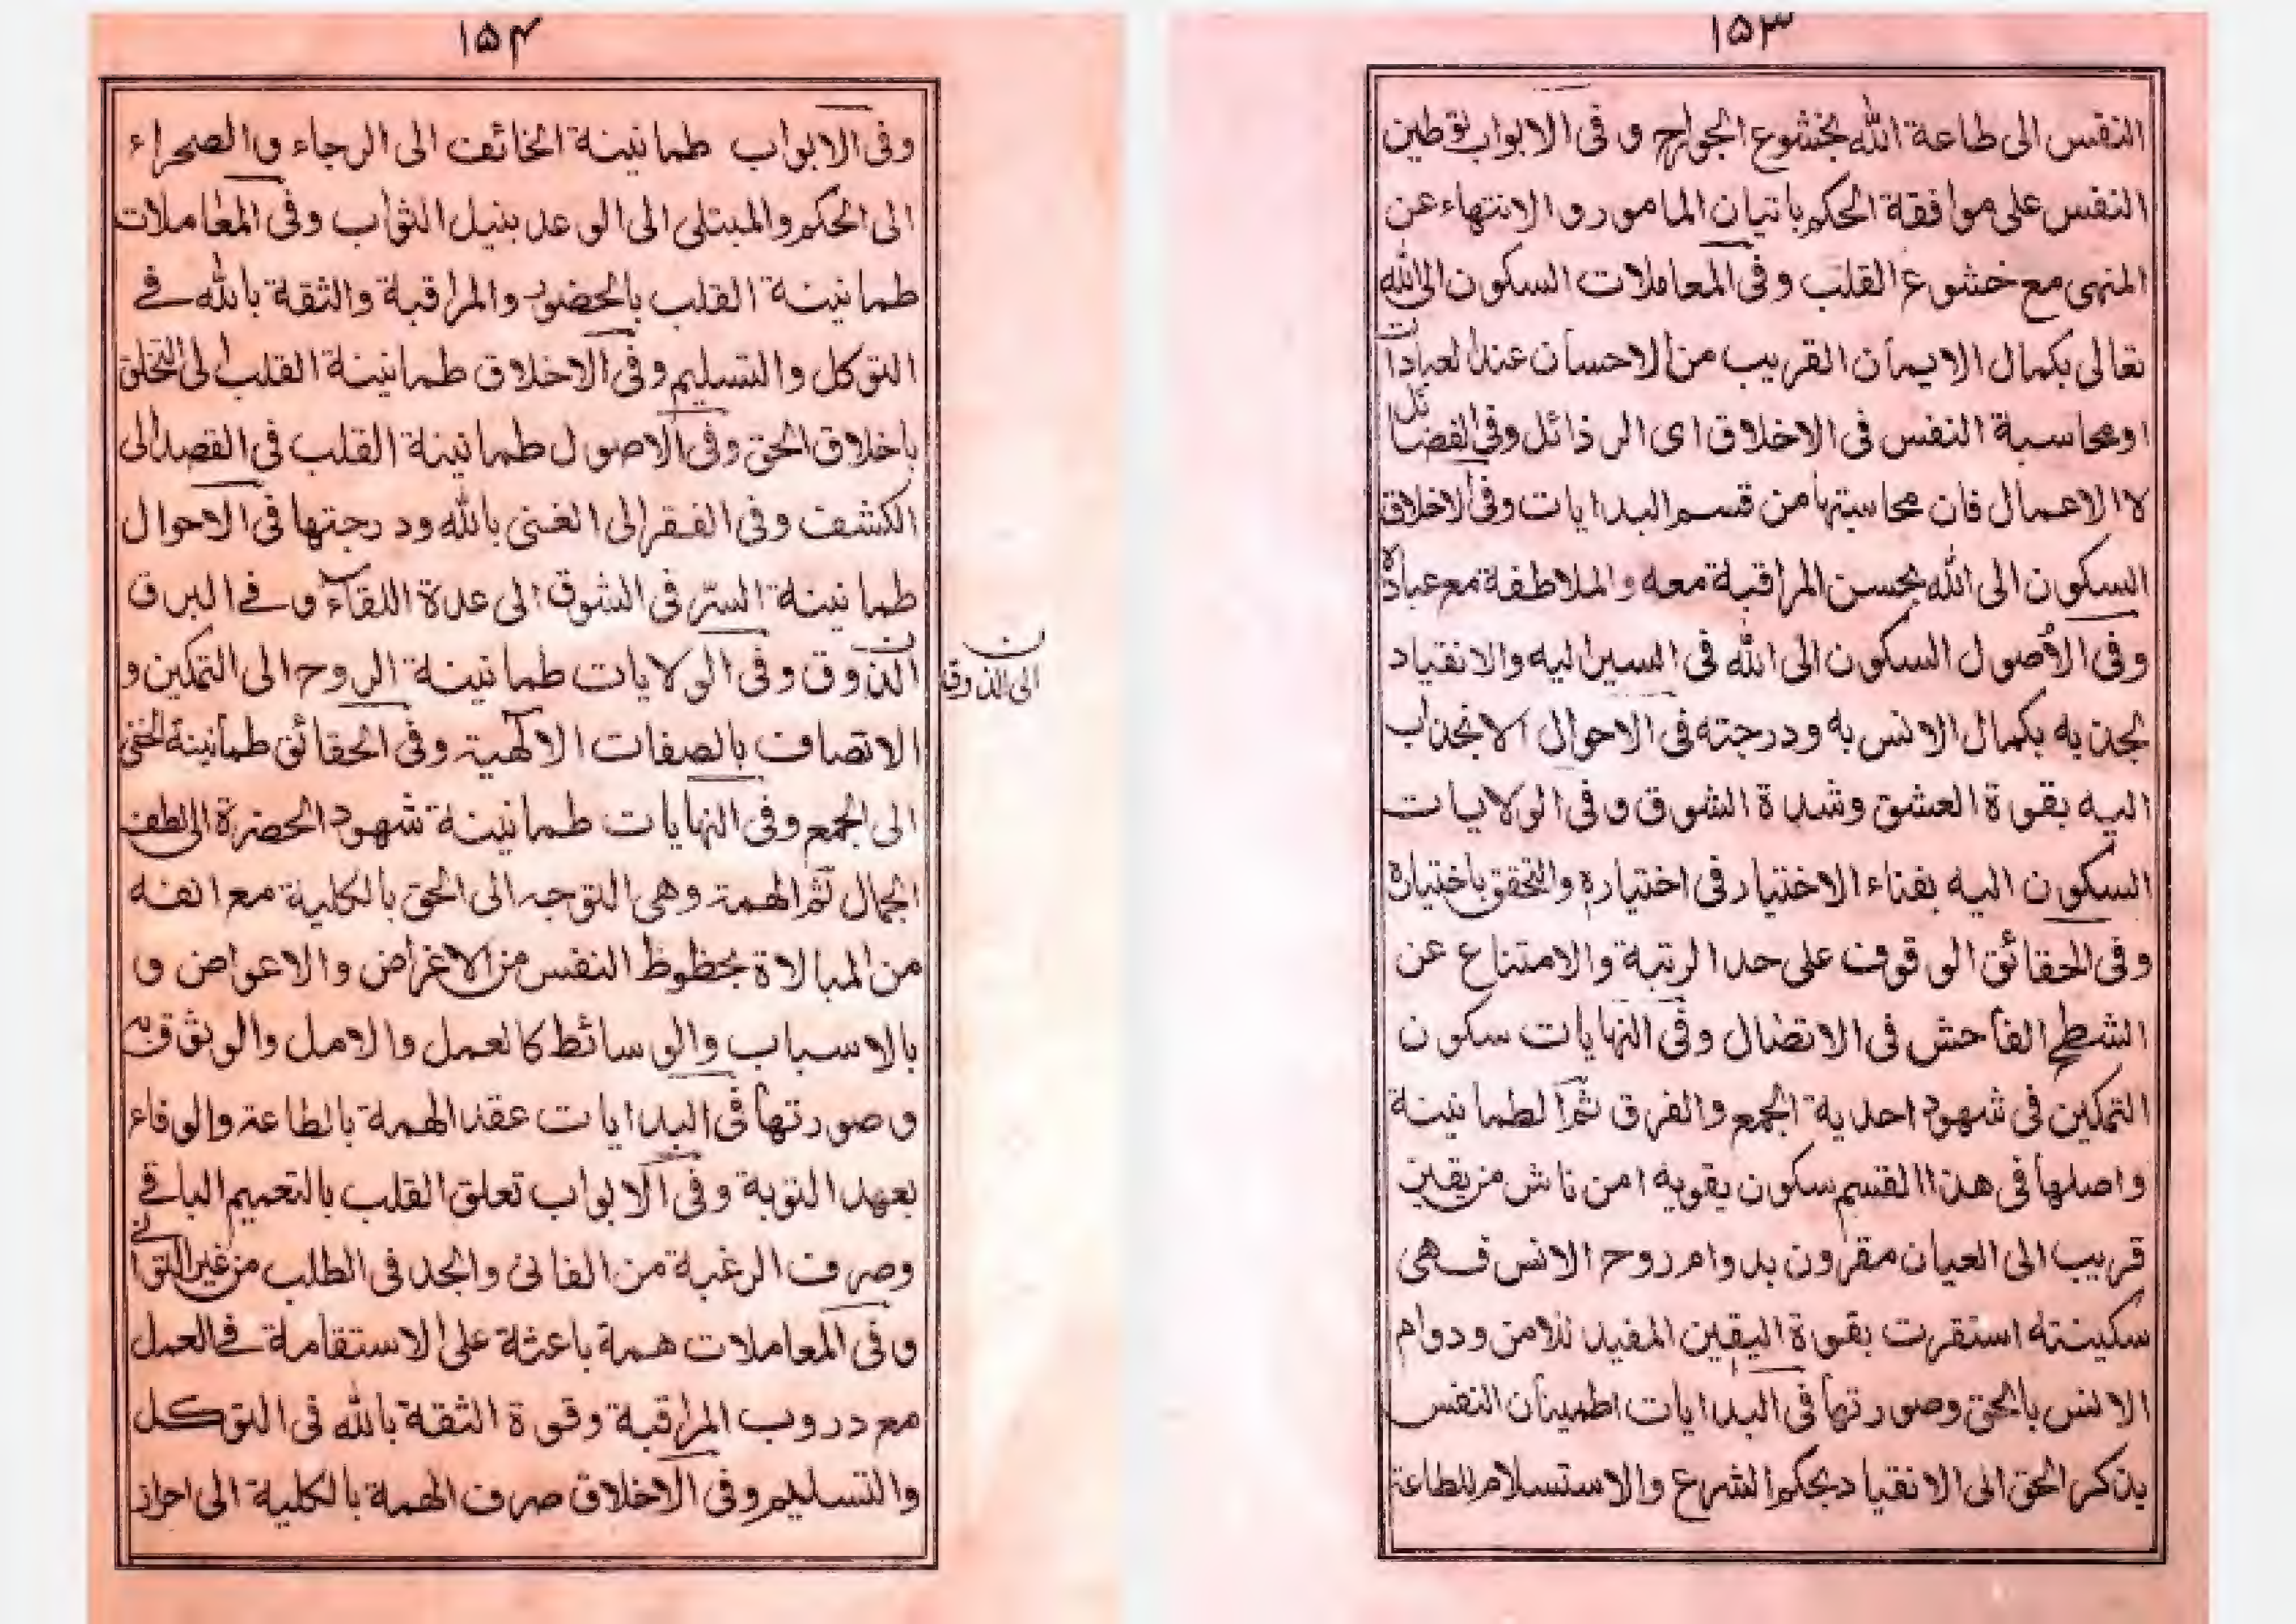 ١٥٣
النفس الى طاعة الله بخشوع الجوارح و فى الابواب توطين
النفس على موافقة الحكم باتيان المامور و الانتهاء عن
المنهى مع خشوع القلب وفى المعاملات السكون الى الله
تعالى بكمال الايمان القريب من الاحسان عند العبادات
اومحاسبة النفس فى الاخلاق اى الرذائل وفى الفضائل
لا الاعمال فان محاسبتها من قسم البدايات وفى الاخلاق
السكون الى الله بحسن المراقبة معه والملاطفة مع عباده
وفى الأصول السكون الى الله فى السير اليه والانقياد
لجذبه بكمال الانس به ودرجته فى الاحوال الانجذاب
اليه بقوة العشق وشدة الشوق وفى الولايات
السكون اليه بفناء الاختيار فى اختياره والتحقق باختياره
وفى الحقائق الوقوف على حد الرتبة والامتناع عن
الشطح الفاحش فى الاتصال وفى النهايات سكون
التمكين فى شهود احدية الجمع والفرق ثم الطمانينة
واصلها فى هذا القسم سكون يقويه امن ناش من يقين
قريب الى العيان مقرون بدوام روح الانس فهى
سكينته استقرت بقوة اليقين المفيد للامن ودوام
الانس بالحق وصورتها فى البدايات اطمينان النفس
بذكر الحق الى الانقياد بحكم الشرع والاستسلام للطاعة
١٥۴
وفى الابواب طمانينة الخائف الى الرجاء والصحراء
الى الحكم والمبتلى الى الوعد بنيل الثواب وفى المعاملات
طمانينة القلب بالحضور والمراقبة والثقة بالله فے
التوكل والتسليم وفى الاخلاق طمانينة القلب الى التخلق
باخلاق الحق وفى الاصول طمانينة القلب فى القصد الى
الكشف وفى الفقر الى الغنى بالله ودرجتها فى الاحوال
طمانينة السرّ فى الشوق الى عدة اللقاء وفے البرق
الذوق وفى الولايات طمانينة الروح الى التمكين و
الى الذوق
الاتصاف بالصفات الالٰهية وفى الحقائق طمانينة الخفى
الى الجمع وفى النهايات طمانينة شهود الحضرة الى لطف
الجمال ثم الهمة وهى التوجه الى الحق بالكلية مع انفه
من المبالاة بحظوظ النفس من الاغراض والاعواض و
بالاسباب والوسائط كالعمل والامل والوثوق به
وصورتها فى البدايات عقد الهمة بالطاعة والوفاء
بعهد التوبة وفى الابواب تعلق القلب بالتعميم الباقے
وصرف الرغبة من الفانى والجد فى الطلب من غير التوانى
وفى المعاملات همة باعثة على الاستقامة فے العمل
مع دروب المراقبة وقوة الثقة بالله فى التوكل
والتسليم وفى الاخلاق صرف الهمة بالكلية الى احراز